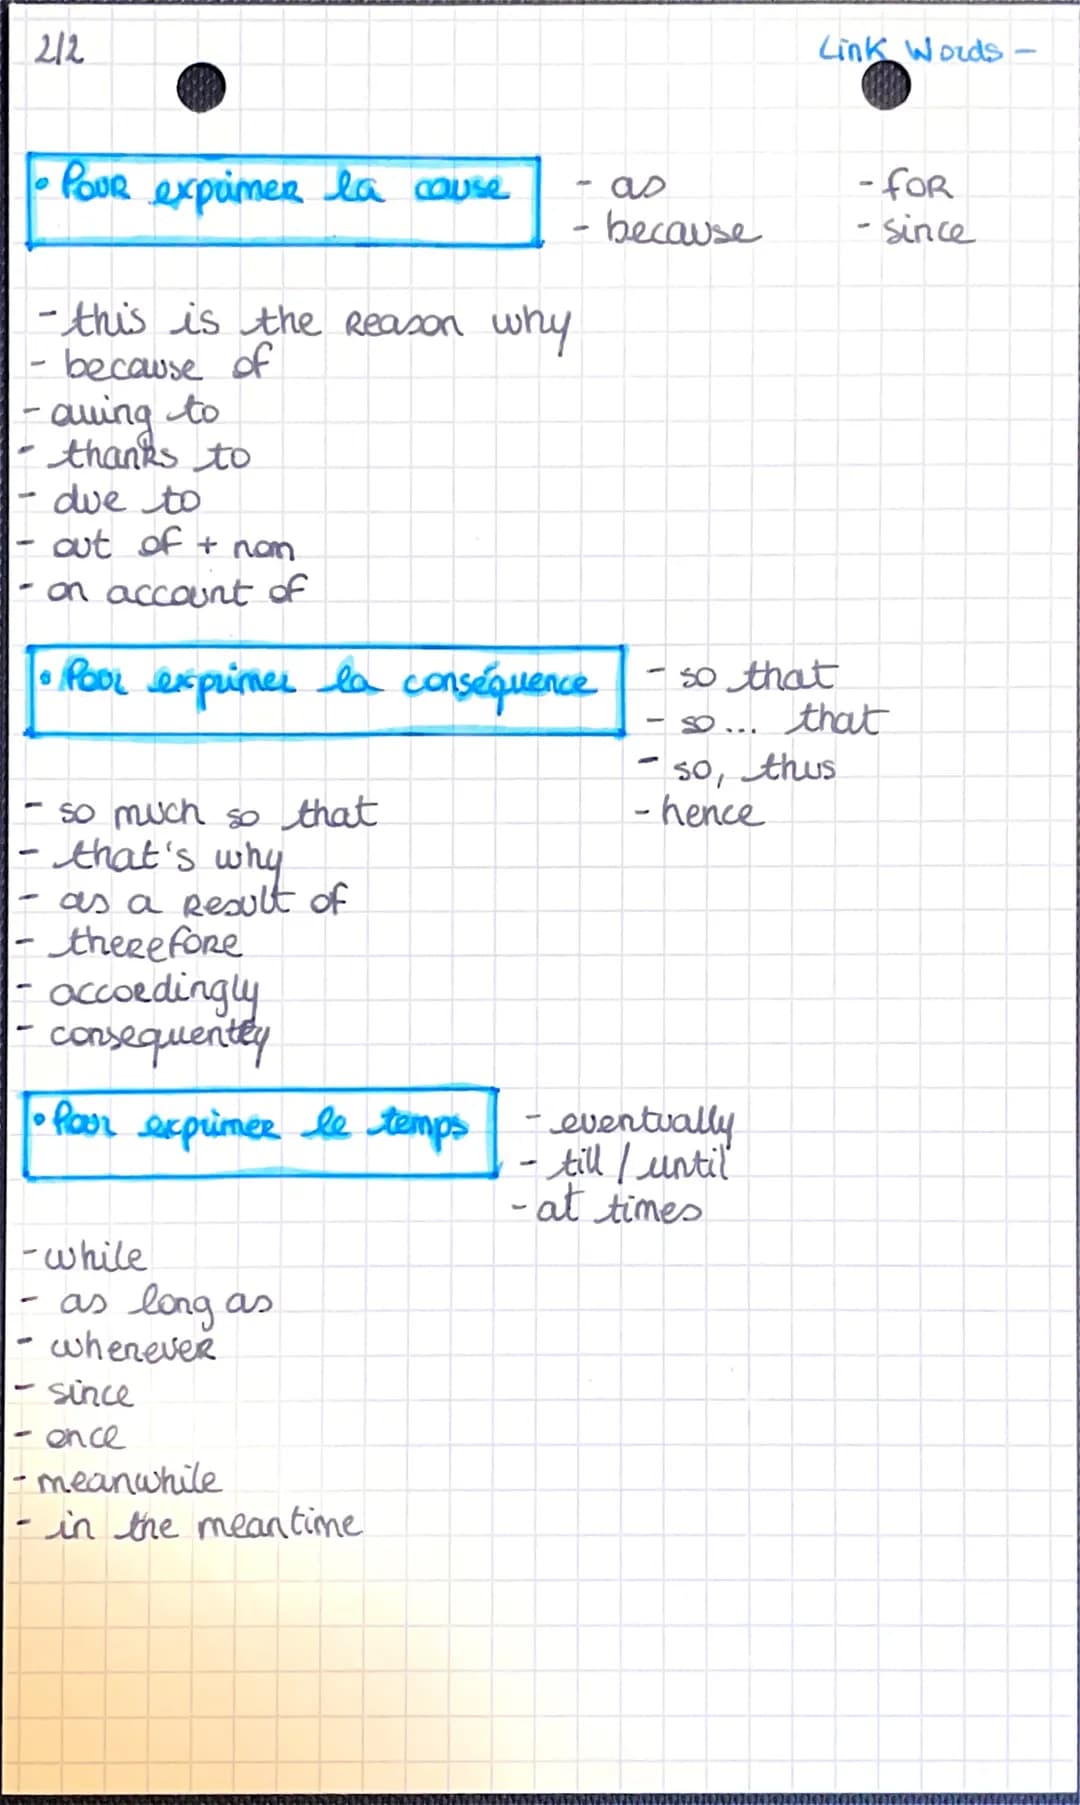 2/2
Link Words -
• Pour exprimer la cause
- as
- for
- because
- since
- this is the reason why
- because of
- owing to
- thanks to
- due to
- out of + nom
- on account of
• Pour exprimer la conséquence
- so that
- so... that
- so, thus
- hence
- so much so that
- that's why
- as a result of
- therefore
- accordingly
- consequently
• Pour exprimer le temps
- eventually
- till / until
- at times
- while
- as long as
- whenever
- since
- once
- meanwhile
- in the meantime